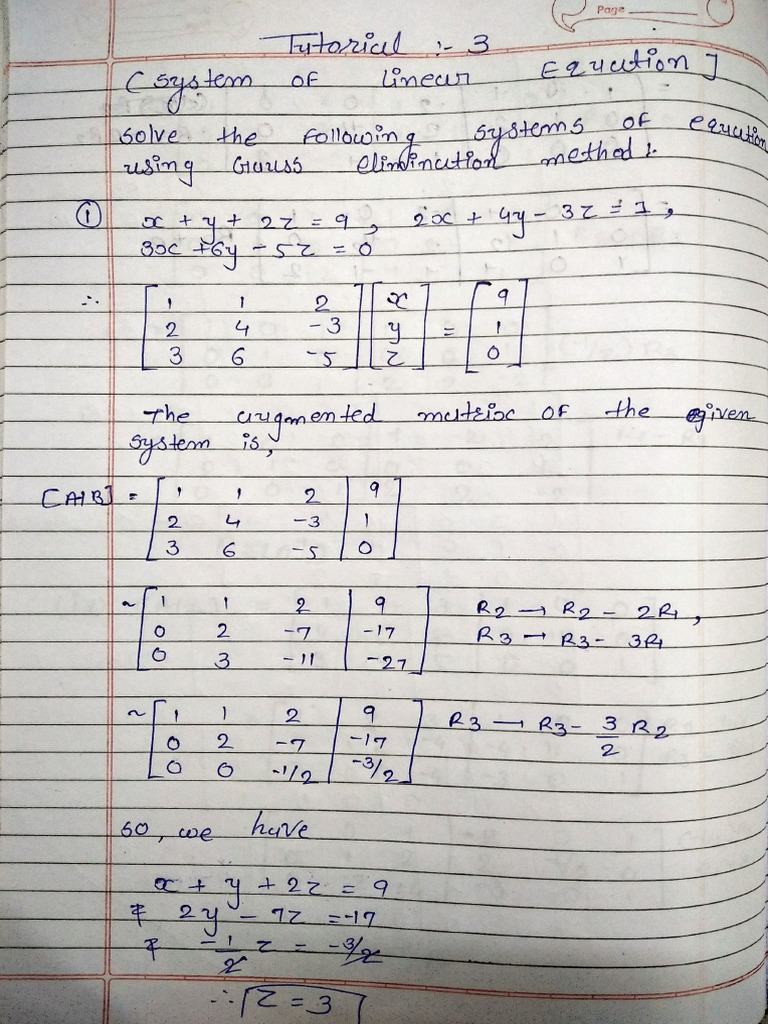 Page
Tutorial :- 3
(System of linear Equation]
Solve the following systems of equation
using Gauss elimination method :
① x + y + 2z = 9, 2x + 4y - 3z = 1,
3x + 6y - 5z = 0
∴ [1 1 2] [x] [9]
[2 4 -3] [y] = [1]
[3 6 -5] [z] [0]
The augmented matrix of the given
system is,
[A|B] = [1 1 2 | 9]
[2 4 -3 | 1]
[3 6 -5 | 0]
~ [1 1 2 | 9] R2 → R2 - 2R1,
[0 2 -7 | -17] R3 → R3 - 3R1
[0 3 -11 | -27]
~ [1 1 2 | 9] R3 → R3 - 3/2 R2
[0 2 -7 | -17]
[0 0 -1/2 | -3/2]
so, we have
x + y + 2z = 9
2y - 7z = -17
-1/2 z = -3/2
∴ z = 3